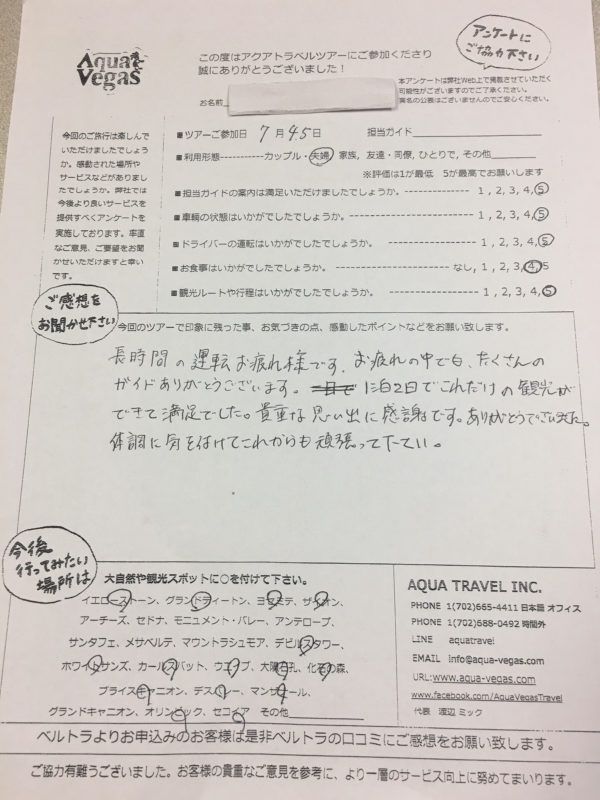 Aqua Vegas
この度はアクアトラベルツアーにご参加くださり
誠にありがとうございました！
アンケートに
ご協力下さい
本アンケートは弊社Web上で掲載させていただく
可能性がございますのでご了承ください。
実名の公表はございませんのでご安心ください。
お名前
今回のご旅行は楽しんで
いただけましたでしょう
か。感動された場所や
サービスなどがありまし
たでしょうか。弊社では
今後より良いサービスを
提供すべくアンケートを
実施しております。率直
なご意見、ご要望をお聞
かせいただけますと幸い
です。
■ツアーご参加日 7月4.5日 担当ガイド
■利用形態-----------カップル・夫婦, 家族, 友達・同僚, ひとりで, その他
※評価は1が最低 5が最高でお願いします
■担当ガイドの案内は満足いただけましたでしょうか。 ---------------- 1, 2, 3, 4, 5
■車輌の状態はいかがでしたでしょうか。 ---------------- 1, 2, 3, 4, 5
■ドライバーの運転はいかがでしたでしょうか。 ---------------- 1, 2, 3, 4, 5
■お食事はいかがでしたでしょうか。 ---------------- なし, 1, 2, 3, 4, 5
■観光ルートや行程はいかがでしたでしょうか。 ---------------- 1, 2, 3, 4, 5
ご感想を
お聞かせ下さい
今回のツアーで印象に残った事、お気づきの点、感動したポイントなどをお願い致します。
長時間の運転お疲れ様です。お疲れの中でも、たくさんの
ガイドありがとうございます。1泊2日でこれだけの観光が
できて満足でした。貴重な思い出に感謝です。ありがとうございました。
体調に気を付けてこれからも頑張って下さい。
今後
行ってみたい
場所は
大自然や観光スポットに○を付けて下さい。
イエローストーン、グランドティートン、ヨセミテ、ザイオン、
アーチーズ、セドナ、モニュメント・バレー、アンテロープ、
サンタフェ、メサベルテ、マウントラシュモア、デビルスタワー、
ホワイトサンズ、カールスバット、ウエイブ、大隕石孔、化石の森、
ブライスキャニオン、デスバレー、マンザナール、
グランドキャニオン、オリンピック、セコイア その他
AQUA TRAVEL INC.
PHONE 1(702)665-4411 日本語 オフィス
PHONE 1(702)688-0492 時間外
LINE aquatravel
EMAIL info@aqua-vegas.com
URL:www.aqua-vegas.com
www.facebook.com/AquaVegasTravel
代表 渡辺 ミック
ベルトラよりお申込みのお客様は是非ベルトラの口コミにご感想をお願い致します。
ご協力有難うございました。お客様の貴重なご意見を参考に、より一層のサービス向上に努めてまいります。